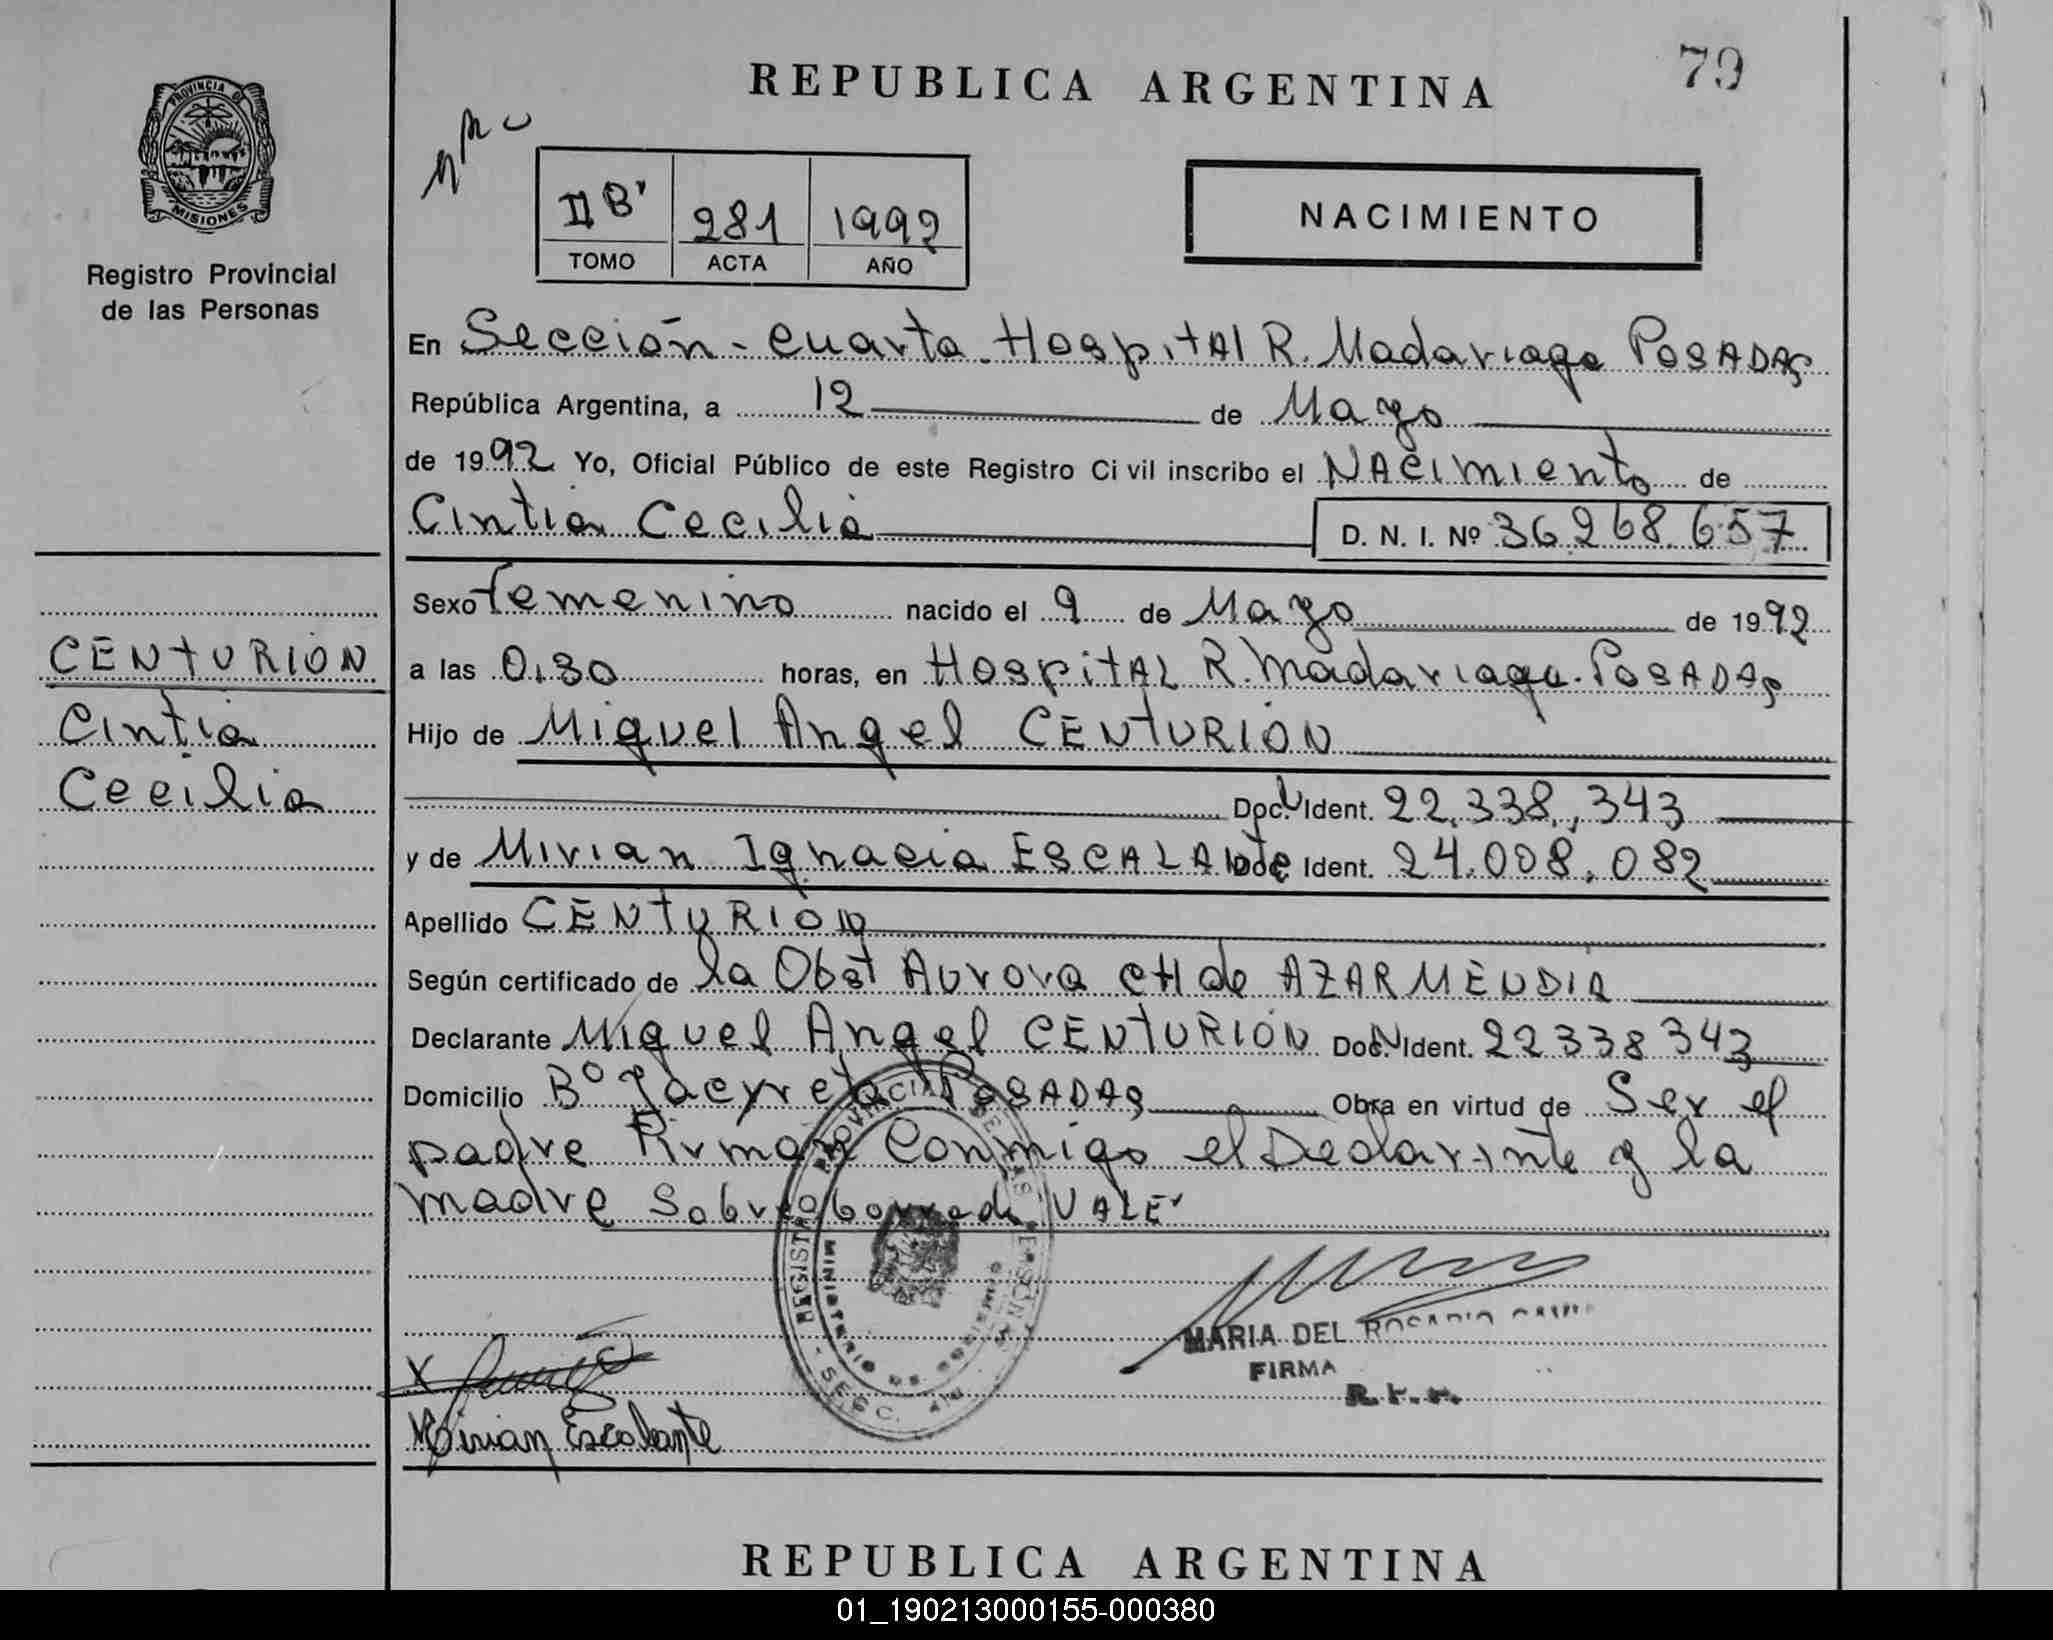 79
REPUBLICA ARGENTINA
PROVINCIA DE
MISIONES
Registro Provincial
de las Personas
II "B"
281
1992
TOMO
ACTA
AÑO
NACIMIENTO
En Sección - Cuarta - Hospital R. Madariaga POSADAS
República Argentina, a 12 de Mayo
de 1992 Yo, Oficial Público de este Registro Civil inscribo el NACimiento de
Cintia Cecilia D. N. I. Nº 36.268.657
Sexo femenino nacido el 9 de Mayo de 1992
CENTURIÓN
Cintia
Cecilia
a las 0,30 horas, en HospitAL R. Madariaga - POSADAS
Hijo de Miguel Angel CENTURIÓN
Doc. Ident. 22.338.343
y de Mirian Ignacia ESCALANte Doc. Ident. 24.008.082
Apellido CENTURIÓN
Según certificado de la Obst Aurora CH de AZARMENDIA
Declarante Miguel Angel CENTURIÓN Doc. Ident. 22338343
Domicilio Bº Yacyreta POSADAS Obra en virtud de Ser el
padre Firman Conmigo el Declarante y la
madre Sobre borrado VALE
REGISTRO PROVINCIAL DE LAS PERSONAS
MINISTERIO DE GOBIERNO
MARIA DEL ROSARIO
FIRMA
Mirian Escalante
REPUBLICA ARGENTINA
01_190213000155-000380